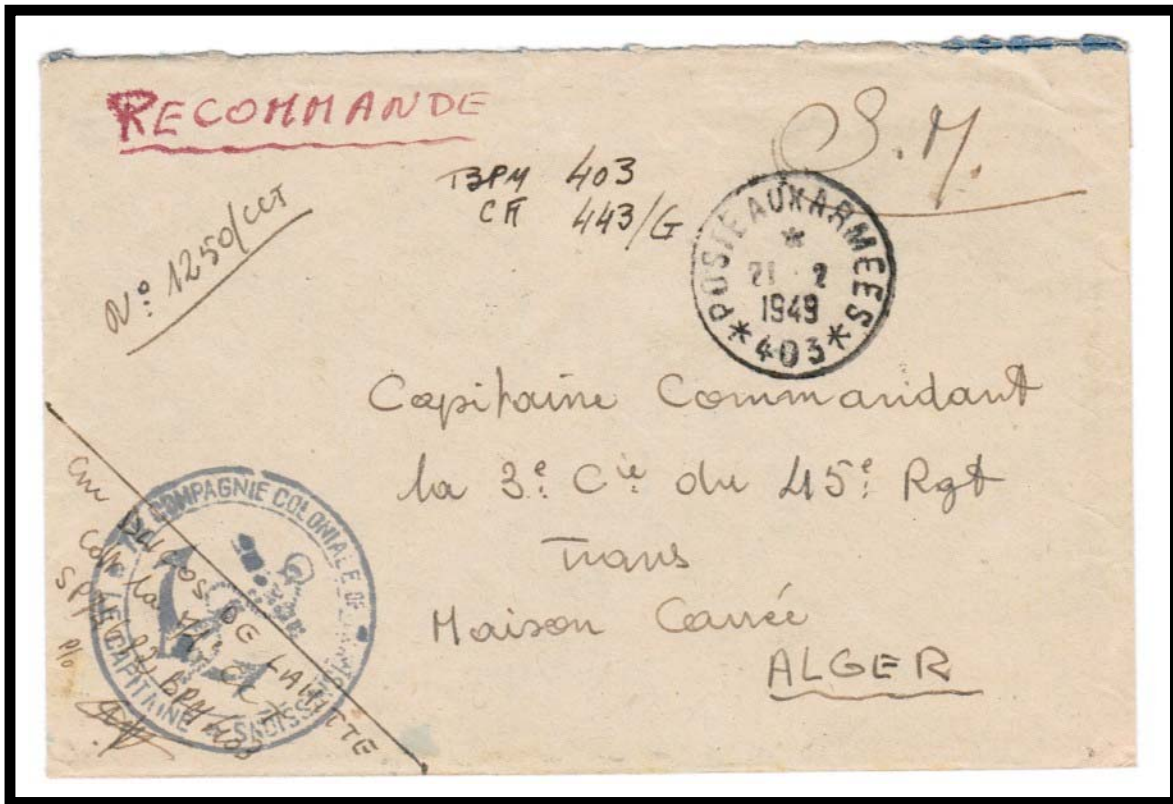 RECOMMANDE
S.M.
BPM 403
CA 443/G
N° 1250/CCT
POSTE AUX ARMEES
21 - 2
1949
403
Capitaine Commandant
la 3e Cie du 45e Rgt
Trans
Maison Carrée
ALGER
COMPAGNIE COLONIALE DE TRANSMISSIONS
LE CAPITAINE
DE LAHITTE
BPM 403
P/o